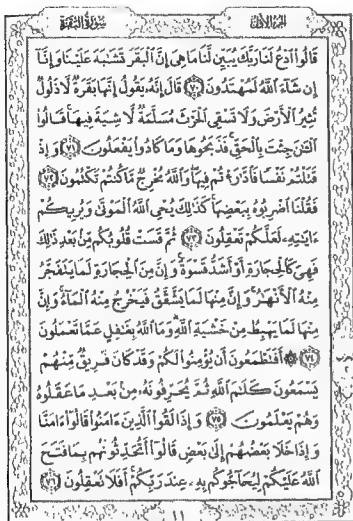 الجزء الأول
سورة البقرة
قَالُوا۟ ٱدْعُ لَنَا رَبَّكَ يُبَيِّن لَّنَا مَا هِىَ إِنَّ ٱلْبَقَرَ تَشَـٰبَهَ عَلَيْنَا وَإِنَّآ
إِن شَآءَ ٱللَّهُ لَمُهْتَدُونَ ٧٠ قَالَ إِنَّهُۥ يَقُولُ إِنَّهَا بَقَرَةٌ لَّا ذَلُولٌ
تُثِيرُ ٱلْأَرْضَ وَلَا تَسْقِى ٱلْحَرْثَ مُسَلَّمَةٌ لَّا شِيَةَ فِيهَا قَالُوا۟
ٱلْـَٔـٰنَ جِئْتَ بِٱلْحَقِّ فَذَبَحُوهَا وَمَا كَادُوا۟ يَفْعَلُونَ ٧١ وَإِذْ
قَتَلْتُمْ نَفْسًا فَٱدَّٰرَْٰٔتُمْ فِيهَا وَٱللَّهُ مُخْرِجٌ مَّا كُنتُمْ تَكْتُمُونَ ٧٢
فَقُلْنَا ٱضْرِبُوهُ بِبَعْضِهَا كَذَٰلِكَ يُحْىِ ٱللَّهُ ٱلْمَوْتَىٰ وَيُرِيكُمْ
ءَايَـٰتِهِۦ لَعَلَّكُمْ تَعْقِلُونَ ٧٣ ثُمَّ قَسَتْ قُلُوبُكُم مِّنۢ بَعْدِ ذَٰلِكَ
فَهِىَ كَٱلْحِجَارَةِ أَوْ أَشَدُّ قَسْوَةً وَإِنَّ مِنَ ٱلْحِجَارَةِ لَمَا يَتَفَجَّرُ
مِنْهُ ٱلْأَنْهَـٰرُ وَإِنَّ مِنْهَا لَمَا يَشَّقَّقُ فَيَخْرُجُ مِنْهُ ٱلْمَآءُ وَإِنَّ
مِنْهَا لَمَا يَهْبِطُ مِنْ خَشْيَةِ ٱللَّهِ وَمَا ٱللَّهُ بِغَـٰفِلٍ عَمَّا تَعْمَلُونَ
٧٤ ۞ أَفَتَطْمَعُونَ أَن يُؤْمِنُوا۟ لَكُمْ وَقَدْ كَانَ فَرِيقٌ مِّنْهُمْ
يَسْمَعُونَ كَلَـٰمَ ٱللَّهِ ثُمَّ يُحَرِّفُونَهُۥ مِنۢ بَعْدِ مَا عَقَلُوهُ
وَهُمْ يَعْلَمُونَ ٧٥ وَإِذَا لَقُوا۟ ٱلَّذِينَ ءَامَنُوا۟ قَالُوٓا۟ ءَامَنَّا
وَإِذَا خَلَا بَعْضُهُمْ إِلَىٰ بَعْضٍ قَالُوٓا۟ أَتُحَدِّثُونَهُم بِمَا فَتَحَ
ٱللَّهُ عَلَيْكُمْ لِيُحَآجُّوكُم بِهِۦ عِندَ رَبِّكُمْ أَفَلَا تَعْقِلُونَ ٧٦
١١